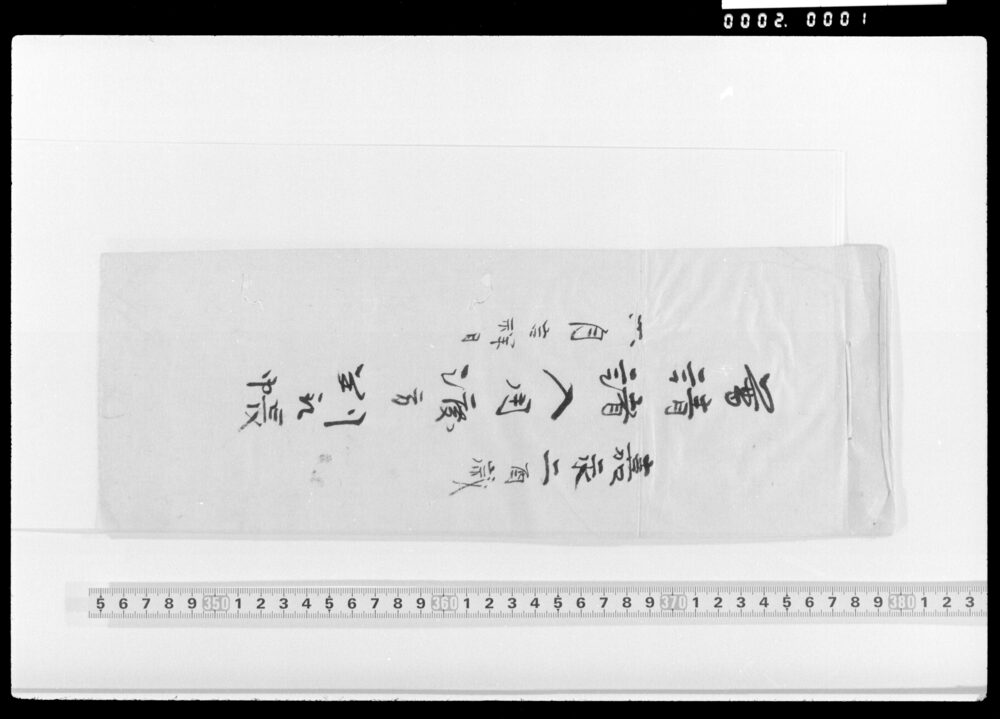 0002. 0001
嘉永二酉歳
普請諸入用渡方
六月吉祥日
5 6 7 8 9 350 1 2 3 4 5 6 7 8 9 360 1 2 3 4 5 6 7 8 9 370 1 2 3 4 5 6 7 8 9 380 1 2 3